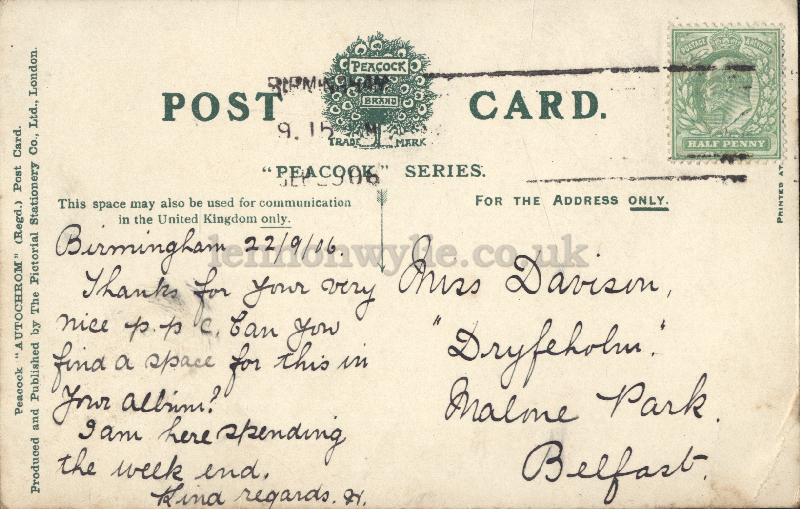 POST CARD.
PEACOCK
BRAND
TRADE MARK
"PEACOCK" SERIES.
BIRMINGHAM
9.15 M
SEP 06
POSTAGE
HALF PENNY
This space may also be used for communication
in the United Kingdom only.
FOR THE ADDRESS ONLY.
Peacock "AUTOCHROM" (Regd.) Post Card.
Produced and Published by The Pictorial Stationery Co., Ltd., London.
PRINTED AT
lennonwylie.co.uk
Birmingham 22/9/06.
Thanks for your very
nice p.p c. Can you
find a space for this in
your album?
I am here spending
the week end.
Kind regards.
Miss Davison,
"Dryfeholm."
Malone Park.
Belfast.